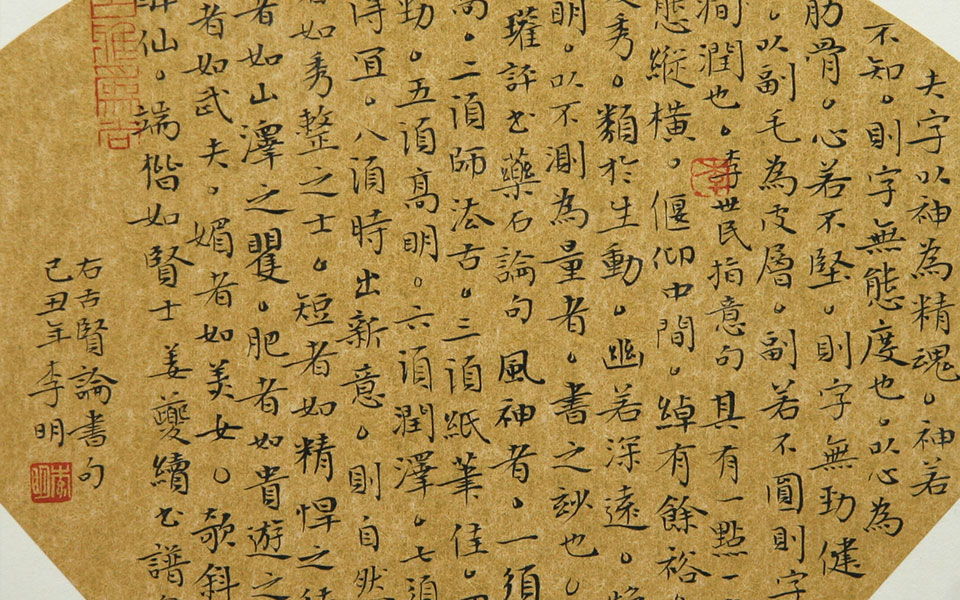 夫字以神為精魂。神若
不知。則字無態度也。以心為
肋骨。心若不堅。則字無勁健
。以副毛為皮層。副若不圓則字
潤也。李世民指意句 具有一點一
態縱橫。偃仰中間。綽有餘裕
秀。類於生動。幽若深遠。
明。以不測為量者。書之玅也。
瓘評书藥石論句 風神者。一須
高。二須師法古。三須紙筆佳。四
勁。五須高明。六須潤澤。七須
得宜。八須時出新意。則自然
如秀整之士。短者如精悍之徒
者如山澤之瞿。肥者如貴遊之
者如武夫。媚者如美女。欹斜
醉仙。端楷如賢士 姜夔續书譜
右古賢論書句
己丑年李明